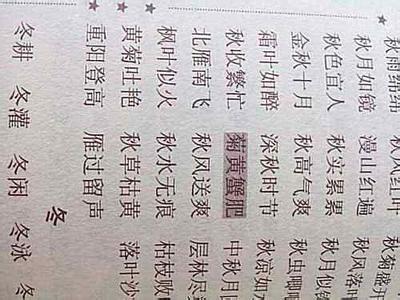 秋雨绵绵 秋风红叶 秋菊盛
秋月如镜 漫山红遍 秋风落
秋色宜人 秋实累累 秋月似
金秋十月 秋高气爽 秋虫唧
霜叶如醉 深秋时节 秋凉如
秋收繁忙 菊黄蟹肥 中秋月
北雁南飞 秋风送爽 层林尽
枫叶似火 秋水无痕 枯枝败
★ 黄菊吐艳 秋草枯黄 落叶沙
★ 重阳登高 雁过留声
冬
冬耕 冬灌 冬闲 冬泳 冬